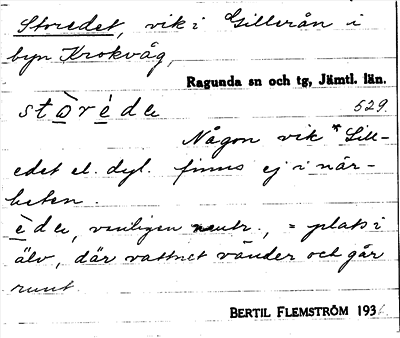 Storedet, vik i Gillerån i
byn Krokvåg,
Ragunda sn och tg, Jämtl. län.
stòrède 529
Någon vik *Lill-
edet el. dyl. finns ej i när-
heten.
ède, vanligen neutr., = plats i
älv, där vattnet vänder och går
runt.
BERTIL FLEMSTRÖM 193